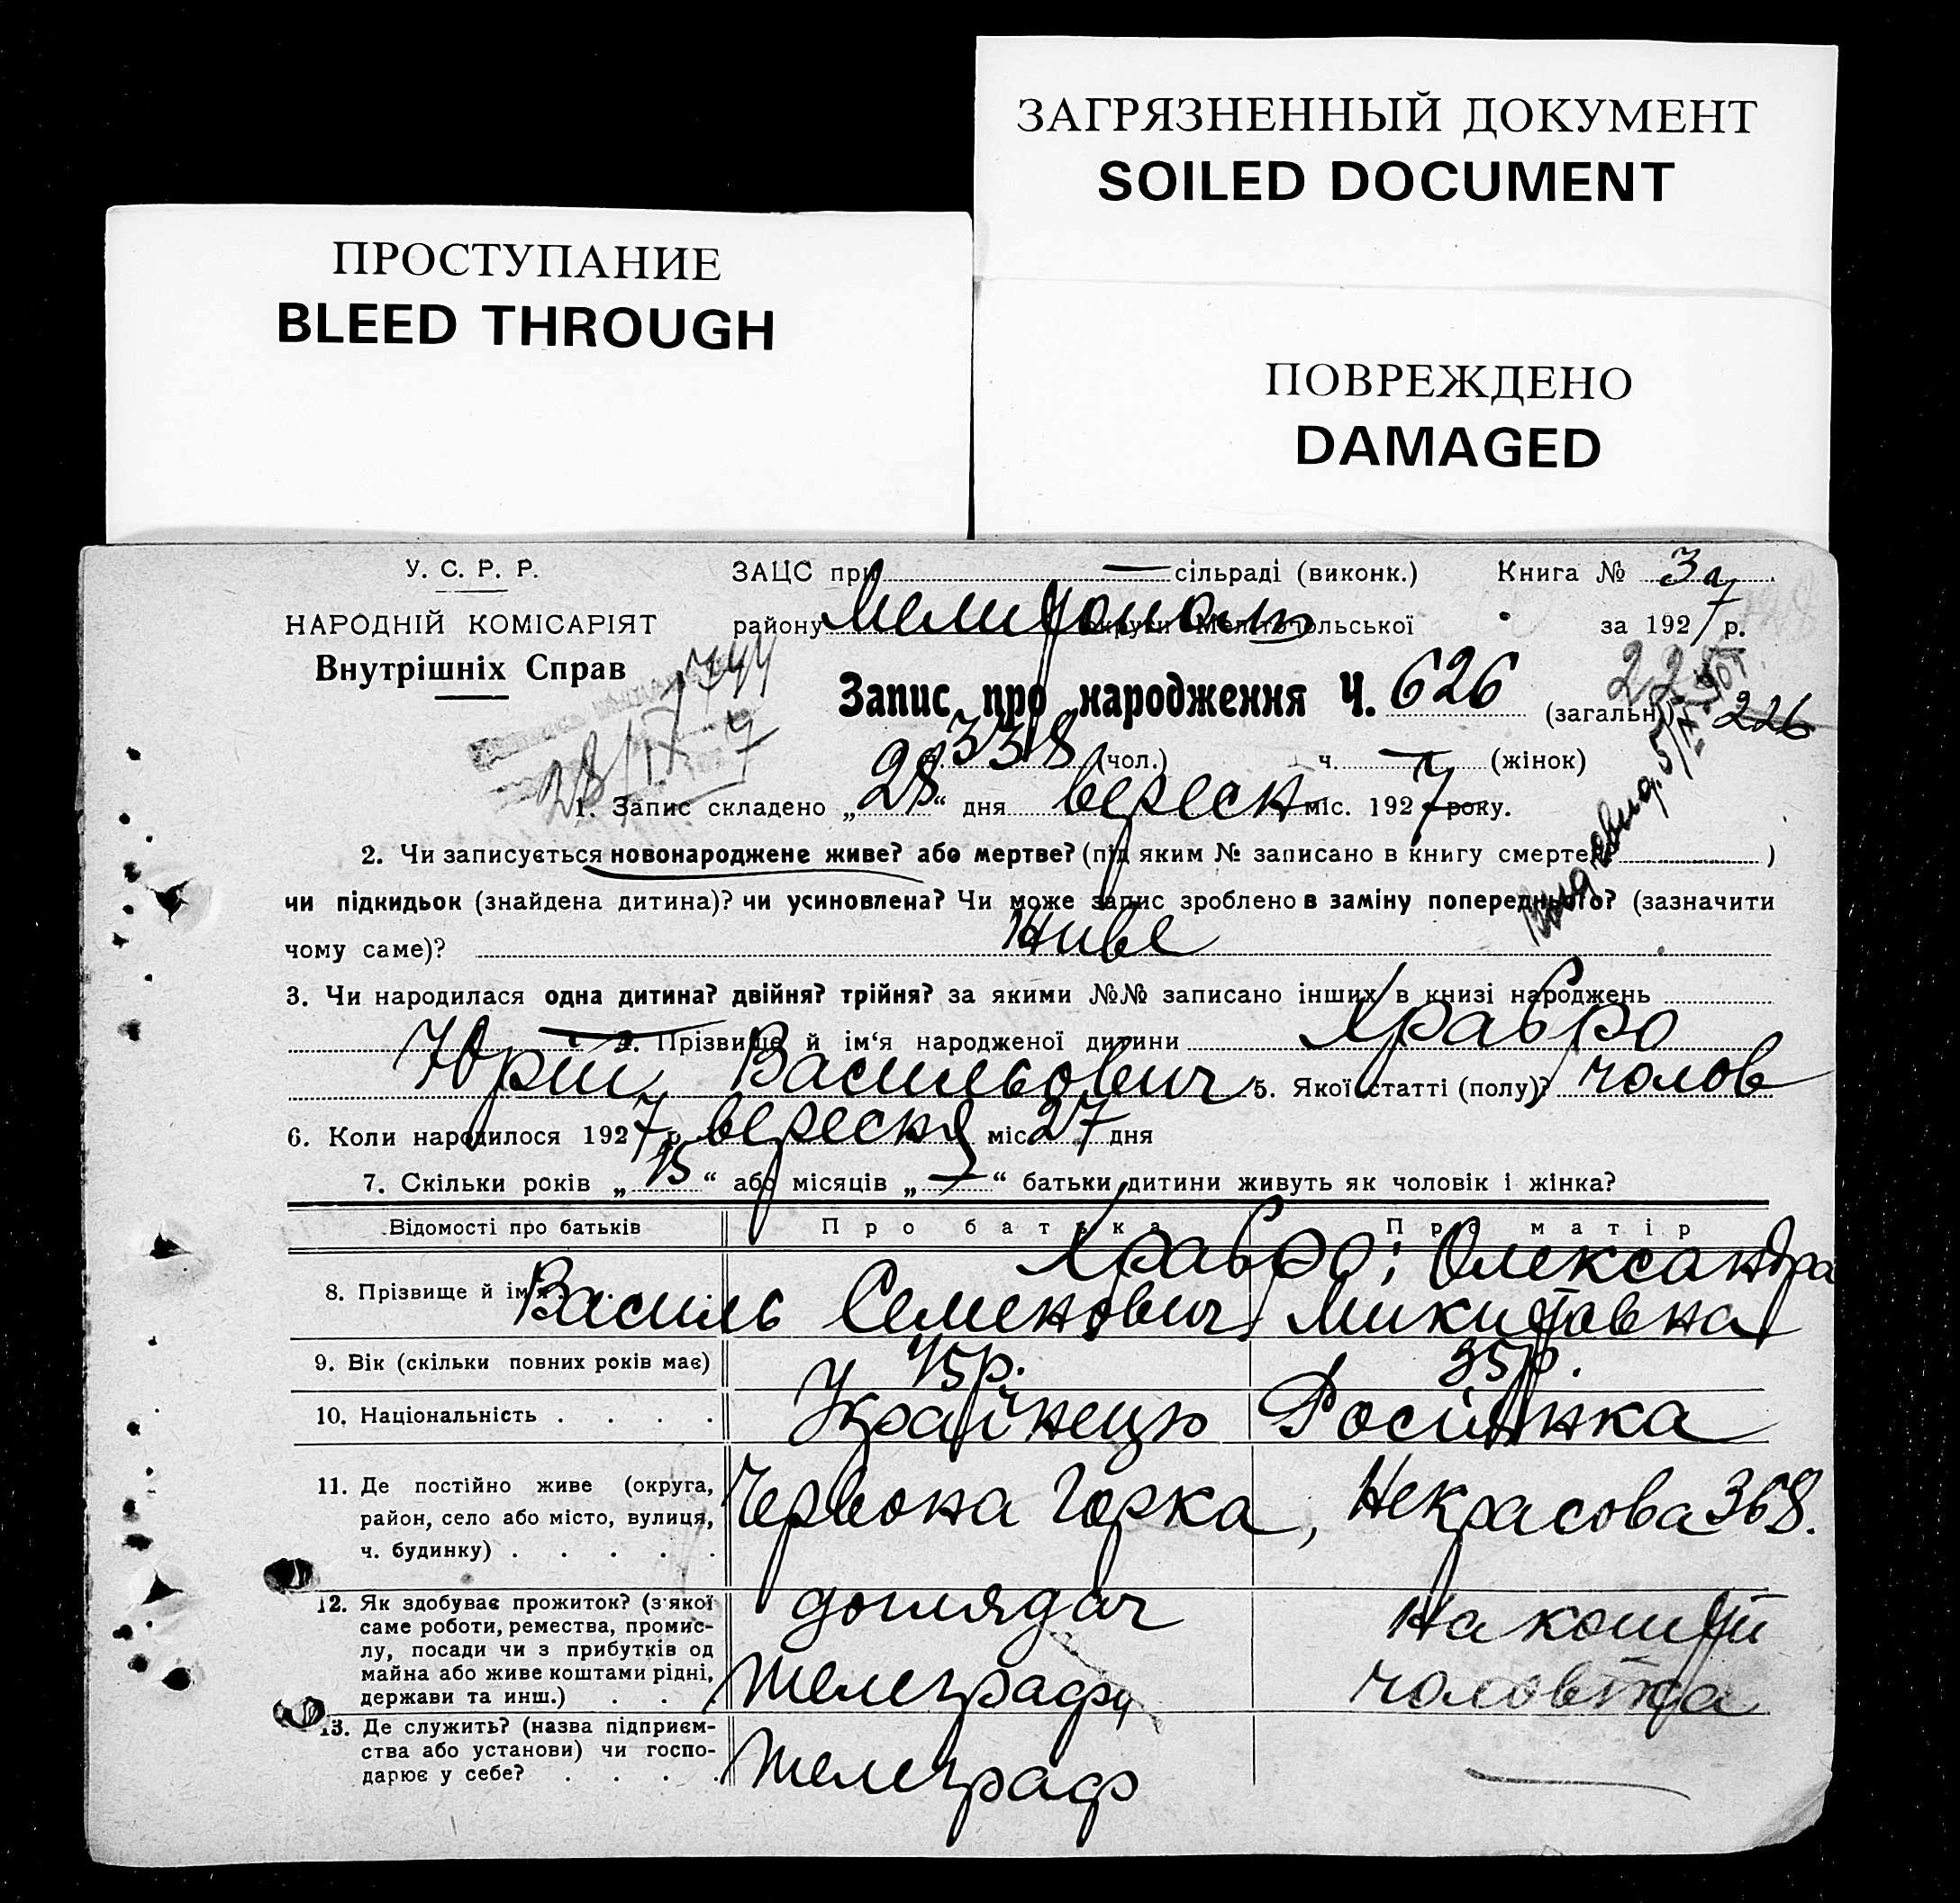 ЗАГРЯЗНЕННЫЙ ДОКУМЕНТ
SOILED DOCUMENT
ПРОСТУПАНИЕ
BLEED THROUGH
ПОВРЕЖДЕНО
DAMAGED
У. С. Р. Р.
НАРОДНІЙ КОМІСАРІЯТ
Внутрішніх Справ
ЗАЦС при — сільраді (виконк.) Книга № 3
району округи Мелітопольської за 1927 р.
Запис про народження Ч. 626 (загальн.) 226
338 (чол.) ч. — (жінок)
28/IX 7
1. Запис складено „28“ дня вересн міс. 1927 року.
2. Чи записується новонароджене живе? або мертве? (під яким № записано в книгу смертей )
чи підкидьок (знайдена дитина)? чи усиновлена? Чи може запис зроблено в заміну попереднього? (зазначити
чому саме)? Живе
3. Чи народилася одна дитина? двійня? трійня? за якими №№ записано інших в книзі народжень
4. Прізвище й ім‘я народженої дитини Храбро
Юрій Васильович 5. Якої статті (полу)? чолов
6. Коли народилося 1927 р. вересня міс. 27 дня
7. Скільки років „15“ або місяців „—“ батьки дитини живуть як чоловік і жінка?
Відомості про батьків Про батька Про матір
8. Прізвище й ім‘я Храбро: Олександра
Василь Семенович Микитовна
9. Вік (скільки повних років має) 45р. 35р.
10. Національність . . . . Українець Росіянка
11. Де постійно живе (округа,
район, село або місто, вулиця,
ч. будинку) . . . . .
Червона Горка, Некрасова 368.
12. Як здобуває прожиток? (з якої
саме роботи, ремества, промис-
лу, посади чи з прибутків од
майна або живе коштами рідні,
держави та инш.) . . .
доглядач
телеграфу
На кошти
чоловіка
13. Де служить? (назва підприєм-
ства або установи) чи госпо-
дарює у себе? . . . .
телеграф —